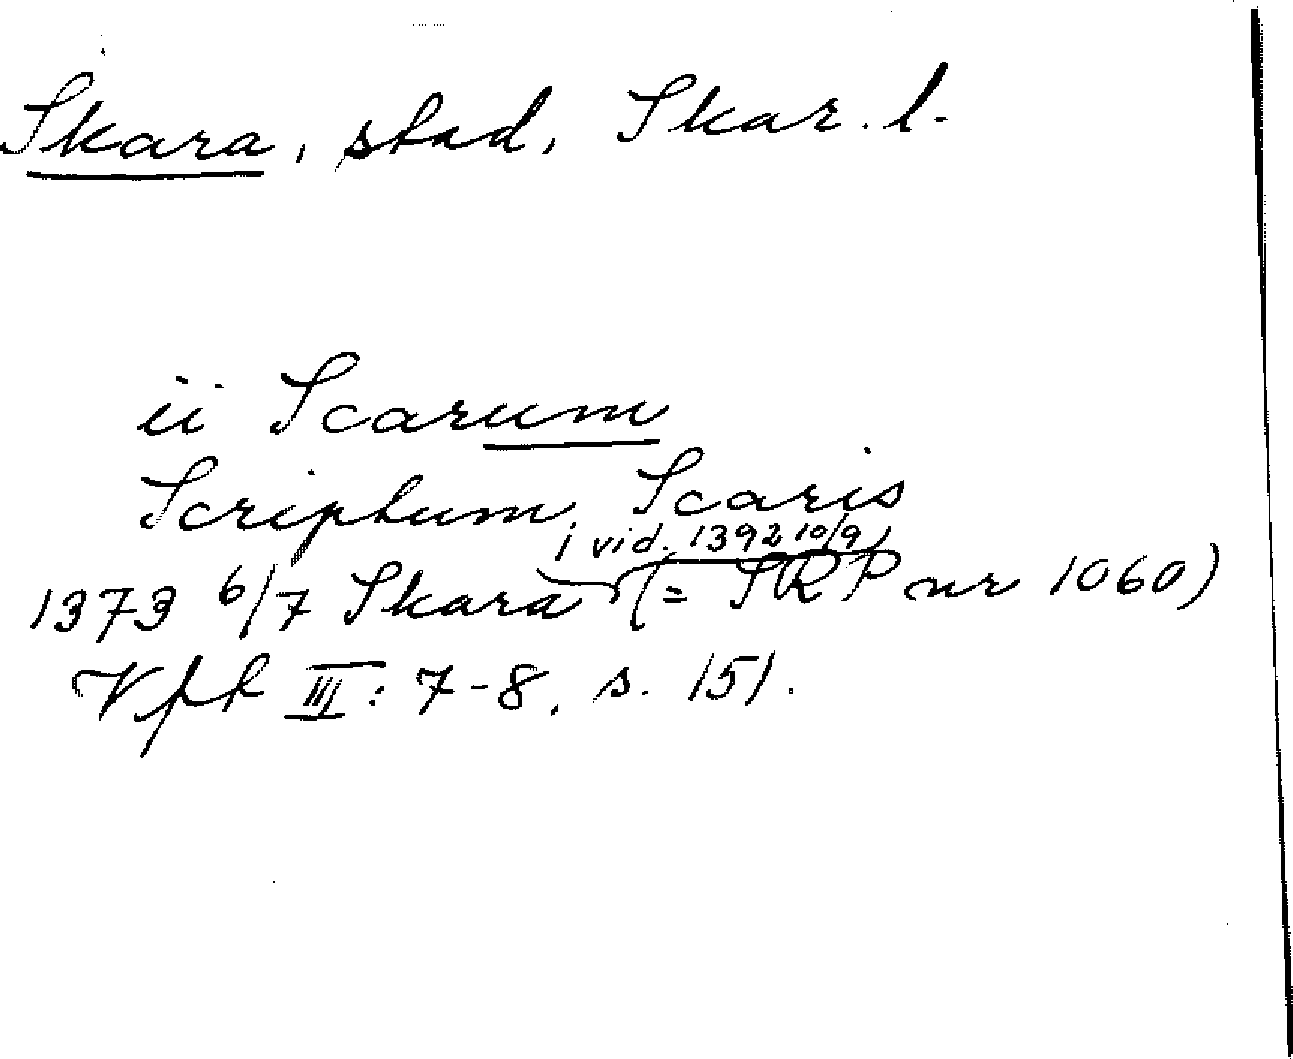 Skara, stad, Skar. l.
ii Scarum
Scriptum, Scaris
i vid. 1392 10/9
1373 6/7 Skara (= SRP nr 1060)
Vfk III: 7-8, s. 151.